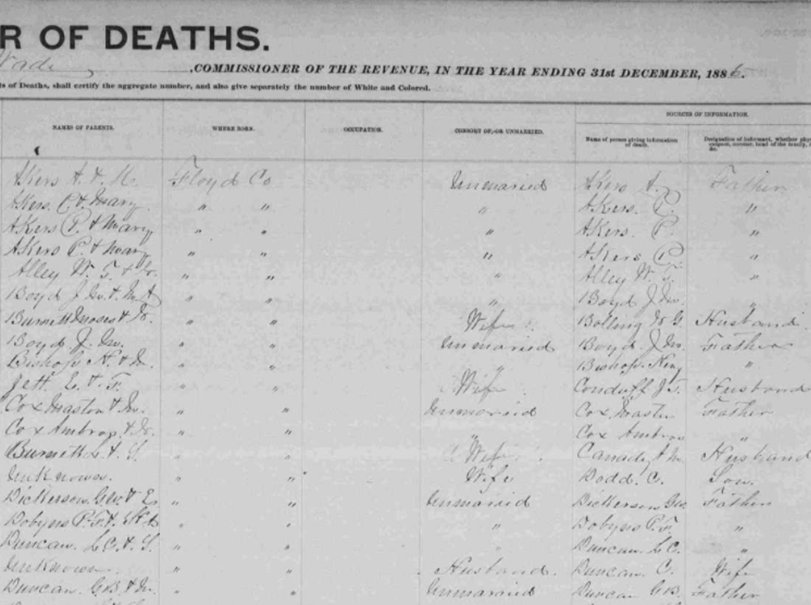 R OF DEATHS.
Wade, COMMISSIONER OF THE REVENUE, IN THE YEAR ENDING 31st DECEMBER, 1886.
ts of Deaths, shall certify the aggregate number, and also give separately the number of White and Colored.
SOURCES OF INFORMATION.
NAMES OF PARENTS. WHERE BORN. OCCUPATION. CONSORT OF, OR UNMARRIED. Name of person giving information of death. Designation of informant, whether
Akers A. & M. Floyd Co Unmarried Akers A. Father
Akers. C & Mary " " " Akers. C. "
Akers P. & Mary " " " Akers. P. "
Akers P. & Mary " " " Akers P. "
Alley W. T. & " " " Alley W. T. "
Boyd J. " " " Boyd J. "
Burnett " " Wife Bolling Husband
Boyd J. " " Unmarried Boyd J. Father
Bishop H. & " " " Bishop "
Jett " " Wife Conduff Husband
Cox Maston & " " Unmarried Cox Maston Father
Cox Ambrose & " " " Cox Ambrose "
Burnett L. & S. " " Wife Canaday Husband
Unknown. " " Wife Dodd. C. Son.
Dickerson. Geo & " " Unmarried Dickerson Geo Father
Dobyns P. T. & " " " Dobyns P. T. "
Duncan. L C. & S. " " " Duncan L C. "
Unknown " " Husband. Duncan C. Wife
Duncan. G B. & " " Unmarried Duncan G B. Father